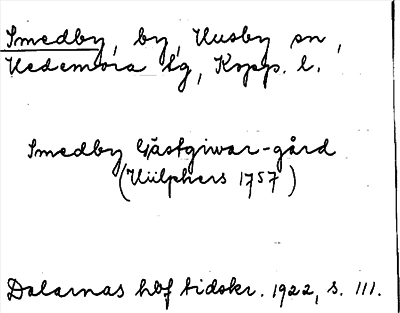 Smedby, by, Husby sn,
Hedemora tg, Kopp. l.
Smedby Gästgiwar-gård
(Hülphers 1757)
Dalarnas hbf tidskr. 1922, s. 111.